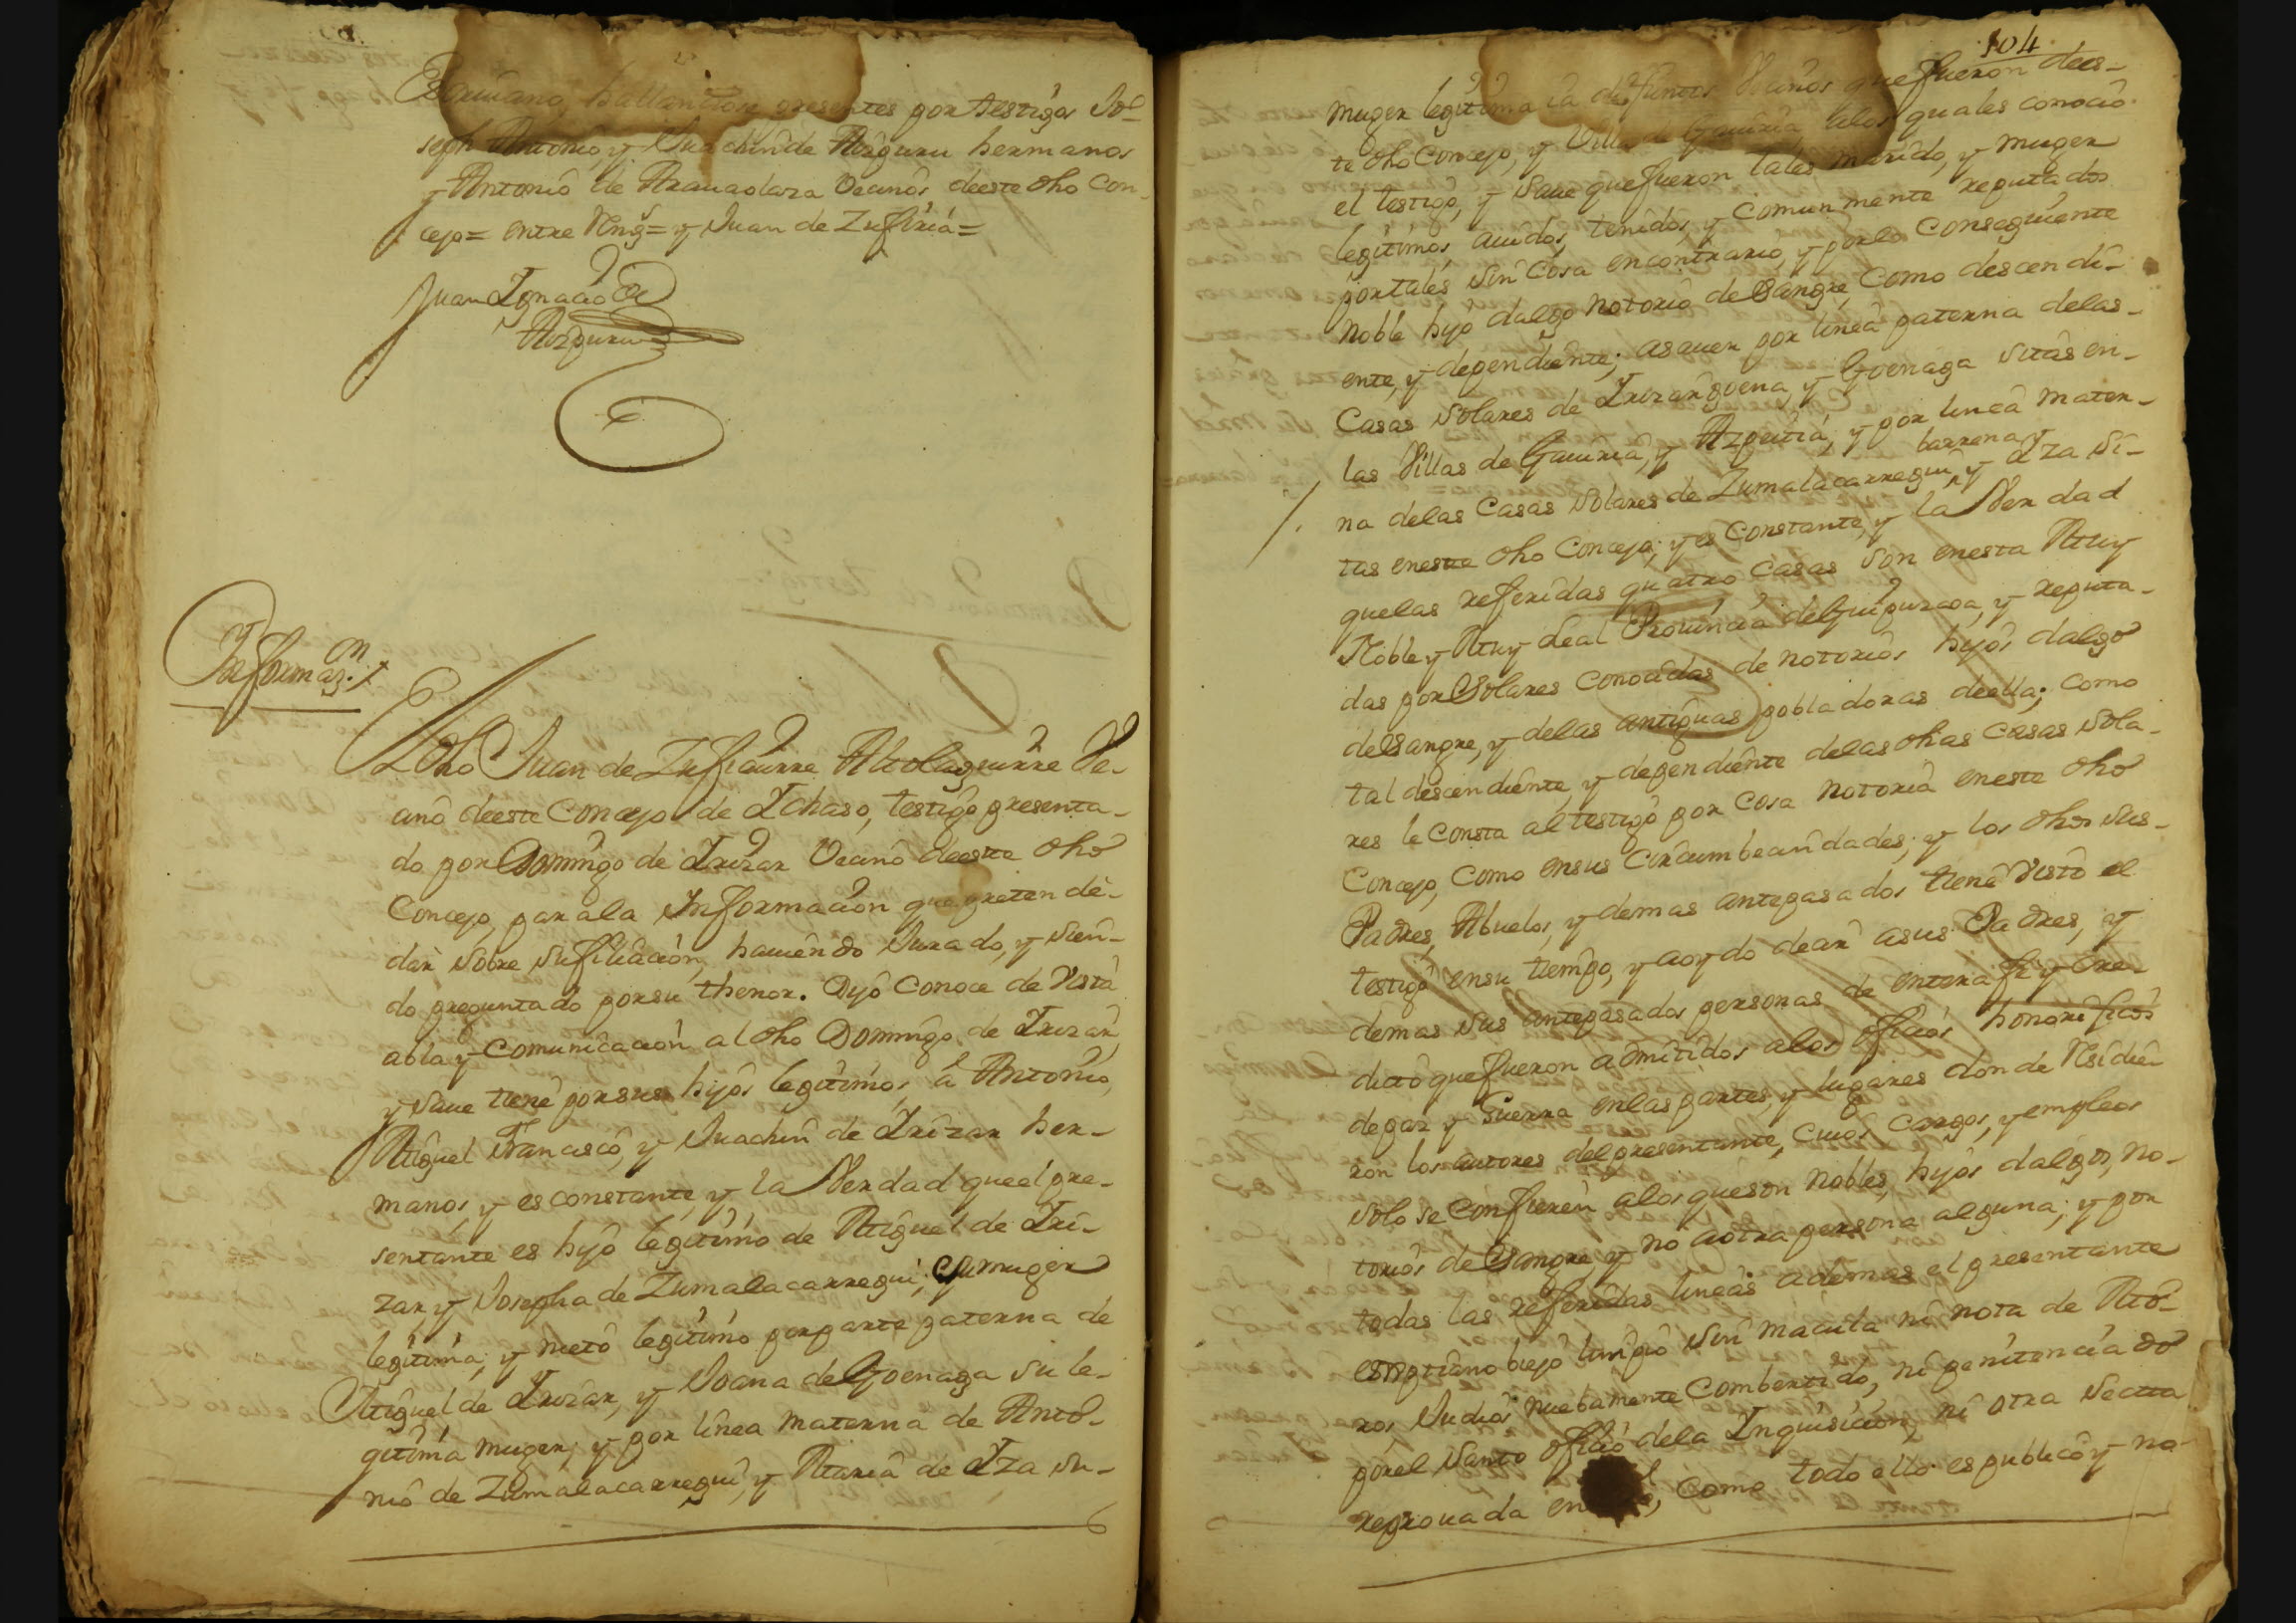 Escriuano, hallandose presentes por testigos Jo-
seph Antonio, y Juachin de Aizguru hermanos
y Antonio de Aranaolaza Vecinos deeste dho Con-
cejo= entre Rengs= y Juan de Zufiria=
Juan Ignacio de
Aizguru
Informaz.on
El dho Juan de Zufiaurre Altolaguirre Ve-
cino deeste Concejo de Ichaso, testigo presenta-
do por Domingo de Irizar Vecino deeste dho
Concejo, para la Informacion que preten de-
dar sobre su filiacion, hauiendo Jurado, y sien-
do preguntado por su thenor. Dijo Conoce de Vista
abla y Comunicacion al dho Domingo de Irizar,
y saue tiene por sus hijos legitimos, a Antonio,
Miguel Francisco, y Juachin de Irizar her-
manos, y es constante, y la Verdad que el pre-
sentante es hijo legitimo de Miguel de Iri-
zar, y Josepha de Zumalacarregui, su muger
legitima; y nieto legitimo por parte paterna de
Miguel de Irizar, y Joana de Goenaga su le-
gitima muger; y por linea materna de Anto-
nio de Zumalacarregui, y Maria de Iza su-
104
muger legitima ia difuntos Vecinos que fueron dees-
te dho Concejo, y Villa de Gauiria alos quales conocio
el testigo, y saue que fueron tales marido, y muger
legitimos, auidos, tenidos, y Comunmente reputados
portales sin Cosa encontrario, y por lo Consequiente
noble hijo dalgo notorio de Sangre, Como descendi-
ente, y dependiente; asauer por linea paterna delas-
Casas solares de Irizarguena, y Goenaga sitas en-
las Villas de Gauiria, y Azpeitia, y por linea mater-
barrena y
na delas Casas solares de Zumalacarregui, y Iza si-
tas eneste dho Concejo; y es Constante, y la Verdad
quelas referidas quatro Casas son enesta Muy
Noble y Muy Leal Prouincia de Guipuzcoa, y reputa-
das por Solares Conocidas de notorios hijos dalgo
de Sangre, y delas antiguas pobladoras deella; como
tal descendiente, y dependiente delas dhas Casas sola-
res le Consta al testigo por Cosa notoria eneste dho
Concejo, Como ensus Circumbecindades; y los dhos sus-
Padres, Abuelos, y demas antepasados tiene Visto el
testigo ensu tiempo, y aoydo decir asus Padres, y
demas sus antepasados personas de entera fe y Cre-
dicto que fueron admitidos alos oficios honorificos
de paz y Guerra enlas partes, y lugares donde Residie-
ron los autores del presentante, Cuios Cargos, y empleos
solo se Confieren alos que son nobles, hijos dalgo, no-
torios de Sangre, y no aotra persona alguna; y por
todas las referidas lineas ademas el presentante
es xptiano biejo limpio sin macula ni nota de Mo-
ros, Judios nuebamente Combertido, ni penitenciado
por el Santo oficio dela Inquisicion, ni otra Secta
reprouada en Como todo ello es publico y no-